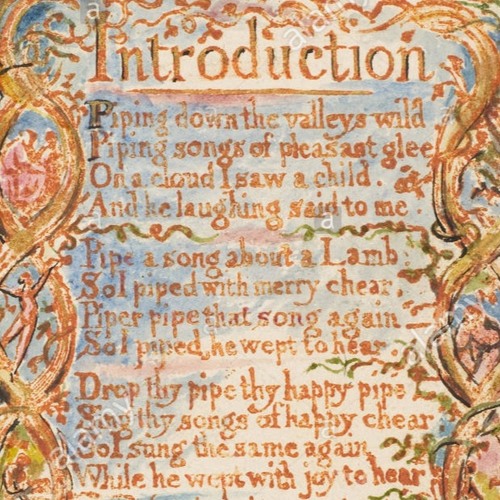 Introduction
Piping down the valleys wild
Piping songs of pleasant glee
On a cloud I saw a child.
And he laughing said to me.
Pipe a song about a Lamb:
So I piped with merry chear,
Piper pipe that song again
So I piped, he wept to hear
Drop thy pipe thy happy pipe
Sing thy songs of happy chear
So I sung the same again
While he wept with joy to hear